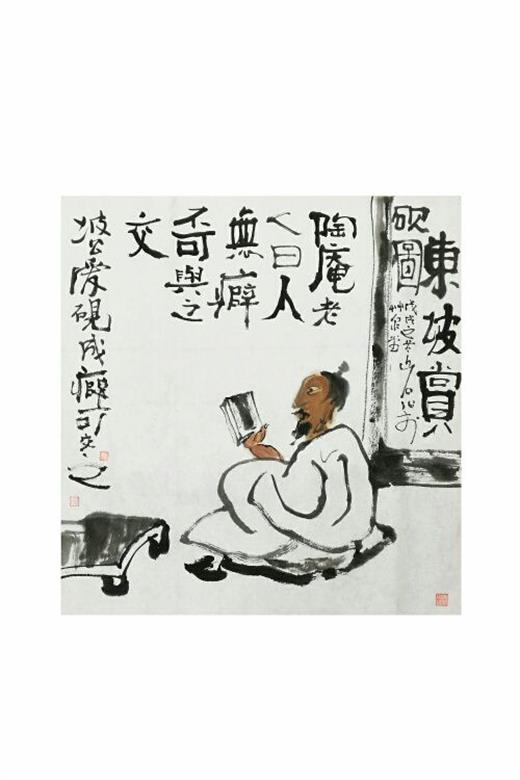 東坡賞
硯圖
戊戌之
陶庵老
人曰人
無癖
不可與之
交
坡公愛硯成癖可交之